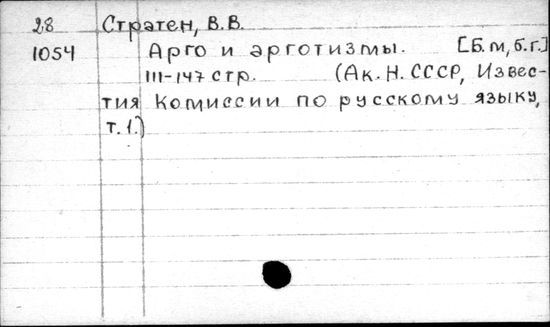 28 Стратен, В.В.
1054 Арго и арготизмы. [Б.м, б.г.]
111-147 стр. (Ак. Н. СССР, Извес-
тия Комиссии по русскому языку,
т. 1.)